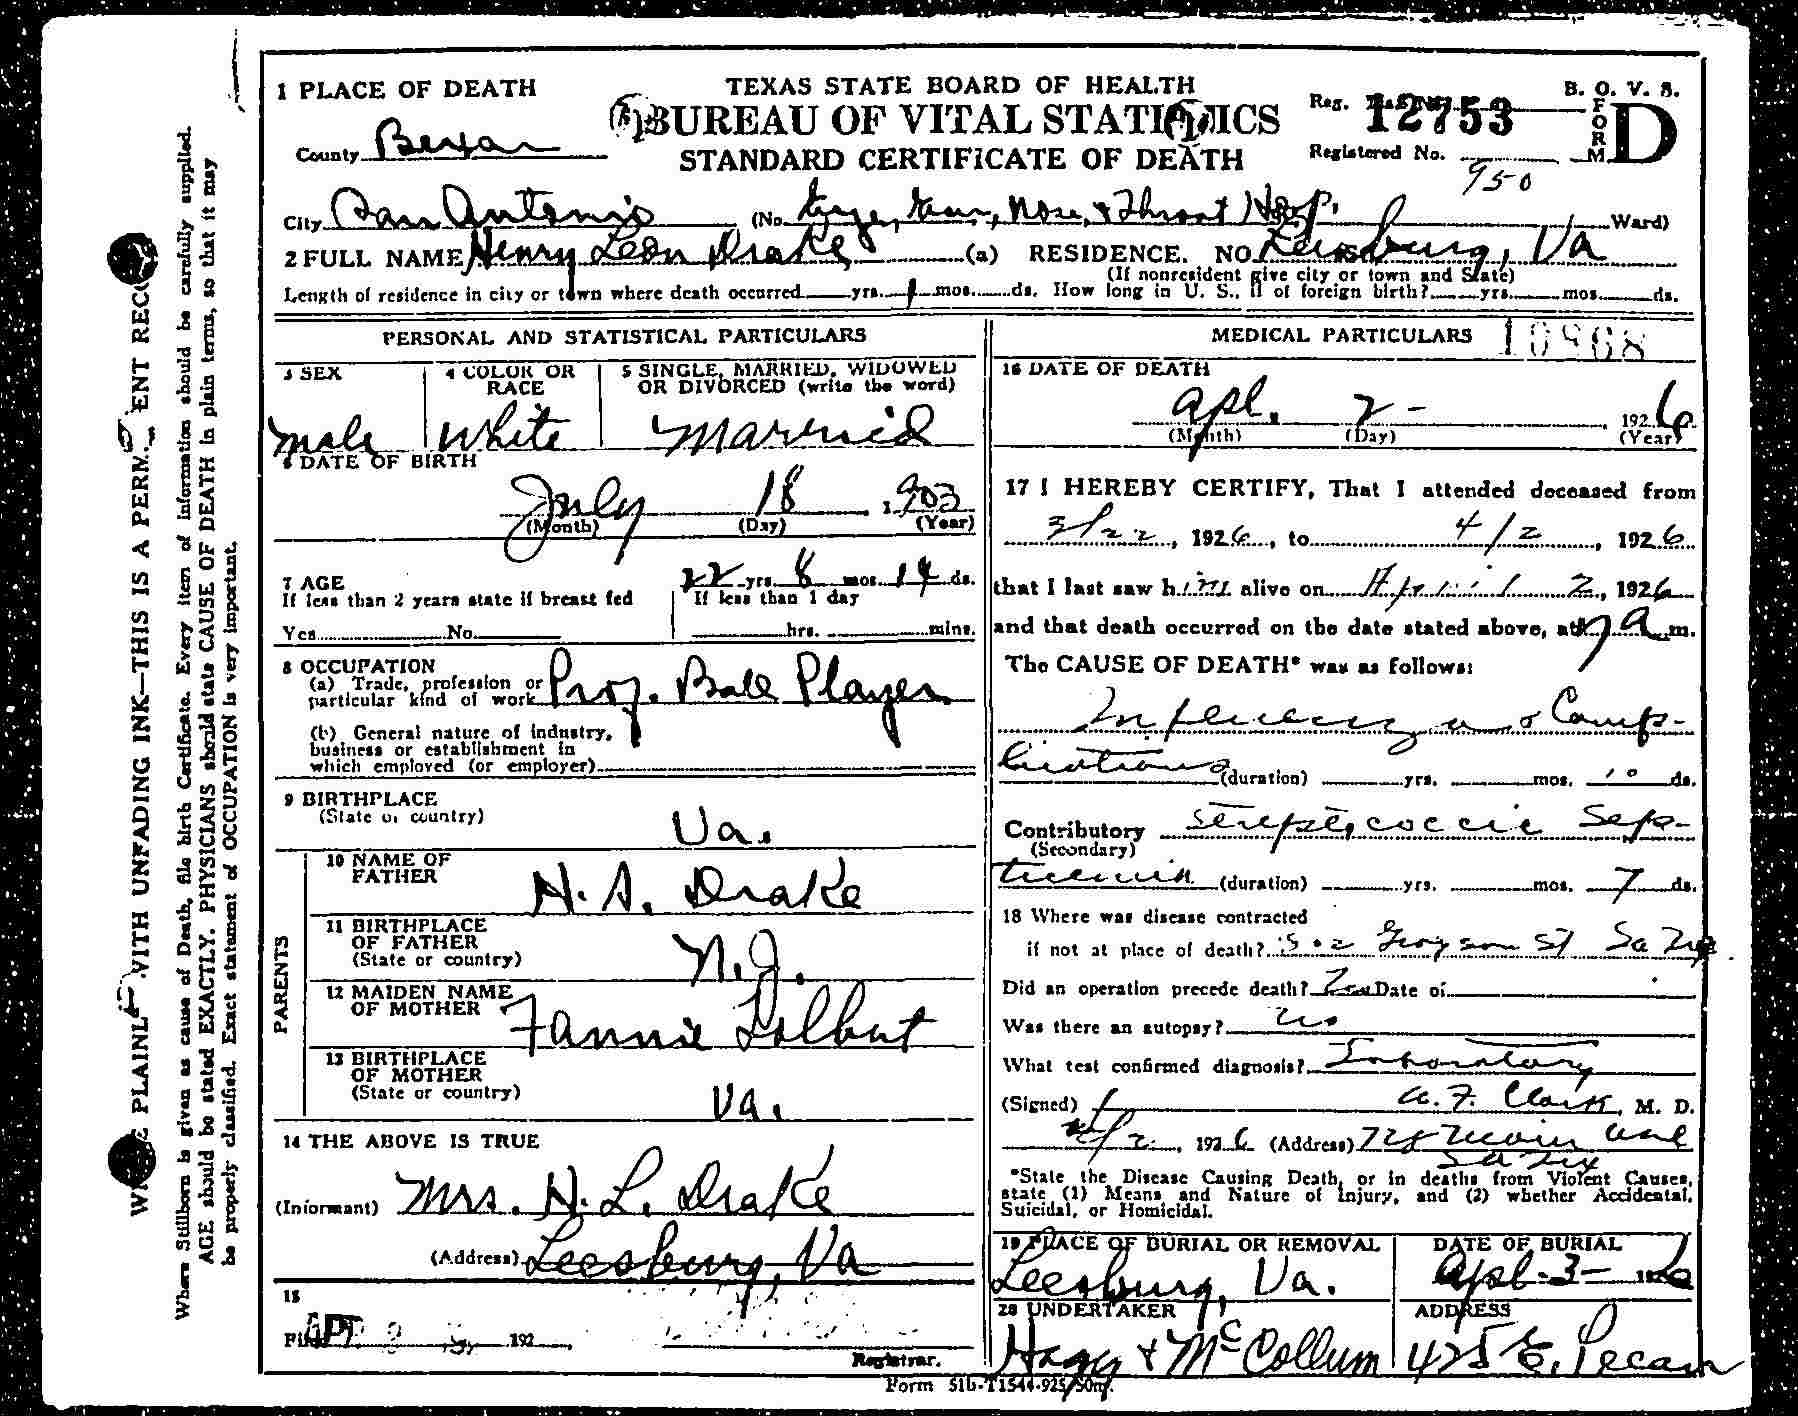 1 PLACE OF DEATH
TEXAS STATE BOARD OF HEALTH
B. O. V. S.
BUREAU OF VITAL STATISTICS
Reg. 12753
FORM D
County Bexar
STANDARD CERTIFICATE OF DEATH
Registered No. 950
City San Antonio (No. Eye, Ear, Nose, & Throat Hosp. Ward)
2 FULL NAME Henry Leon Drake (a) RESIDENCE. NO. Leesburg, Va
(If nonresident give city or town and State)
Length of residence in city or town where death occurred yrs. 1 mos. ds. How long in U. S., if of foreign birth? yrs. mos. ds.
PERSONAL AND STATISTICAL PARTICULARS
3 SEX
4 COLOR OR RACE
5 SINGLE, MARRIED, WIDOWED
OR DIVORCED (write the word)
male
White
Married
6 DATE OF BIRTH
July 18 1903
(Month) (Day) (Year)
7 AGE
22 yrs. 8 mos. 14 ds.
If less than 2 years state if breast fed
If less than 1 day
Yes No hrs. mins.
8 OCCUPATION
(a) Trade, profession or
particular kind of work Prof. Ball Player
(b) General nature of industry,
business or establishment in
which employed (or employer)
9 BIRTHPLACE
(State or country) Va.
PARENTS
10 NAME OF
FATHER H. A. Drake
11 BIRTHPLACE
OF FATHER
(State or country) N.J.
12 MAIDEN NAME
OF MOTHER Fannie
13 BIRTHPLACE
OF MOTHER
(State or country) Va.
14 THE ABOVE IS TRUE
(Informant) Mrs. H. L. Drake
(Address) Leesburg, Va
15
Filed APR 192
Registrar.
MEDICAL PARTICULARS
16 DATE OF DEATH
Apl. 2- 1926
(Month) (Day) (Year)
17 I HEREBY CERTIFY, That I attended deceased from
3/22, 1926, to 4/2, 1926
that I last saw him alive on April 2, 1926
and that death occurred on the date stated above, at 7 A m.
The CAUSE OF DEATH* was as follows:
Influenza & Comp-
lications (duration) yrs. mos. 10 ds.
Contributory Streptococcic Sep-
(Secondary)
ticemia (duration) yrs. mos. 7 ds.
18 Where was disease contracted
if not at place of death? Grayson St Sa Tex
Did an operation precede death? No Date of
Was there an autopsy? no
What test confirmed diagnosis? Laboratory
(Signed) A. F. Clark, M. D.
4/2, 1926 (Address) 728 Main Ave
Sa Tex
*State the Disease Causing Death, or in deaths from Violent Causes,
state (1) Means and Nature of Injury, and (2) whether Accidental,
Suicidal, or Homicidal.
19 PLACE OF BURIAL OR REMOVAL
DATE OF BURIAL
Leesburg, Va.
Apl-3- 1926
20 UNDERTAKER
ADDRESS
Hagy & McCollum
425 E. Pecan
Form 51b-T1544-925-50m.
WRITE PLAINLY WITH UNFADING INK—THIS IS A PERMANENT RECORD
Where Stillborn is given as cause of Death, file birth Certificate. Every item of information should be carefully supplied.
AGE should be stated EXACTLY. PHYSICIANS should state CAUSE OF DEATH in plain terms, so that it may
be properly classified. Exact statement of OCCUPATION is very important.